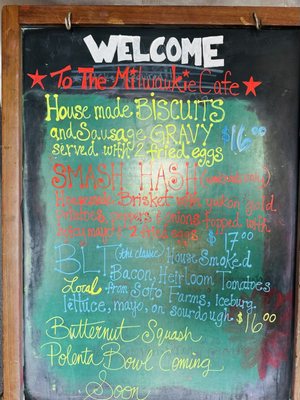 WELCOME
★ To The Milwaukie Cafe ★
House made BISCUITS
and Sausage GRAVY $16.00
served with 2 fried eggs
SMASH HASH
Housemade Brisket with yukon gold
potatoes, peppers & onions topped with
mayo & 2 fried eggs
$17.00
BLT (the classic) House Smoked
Bacon, Heirloom Tomatoes
Local from Soto Farms, Iceburg
lettuce, mayo, on sourdough. $16.00
Butternut Squash
Polenta Bowl Coming
Soon